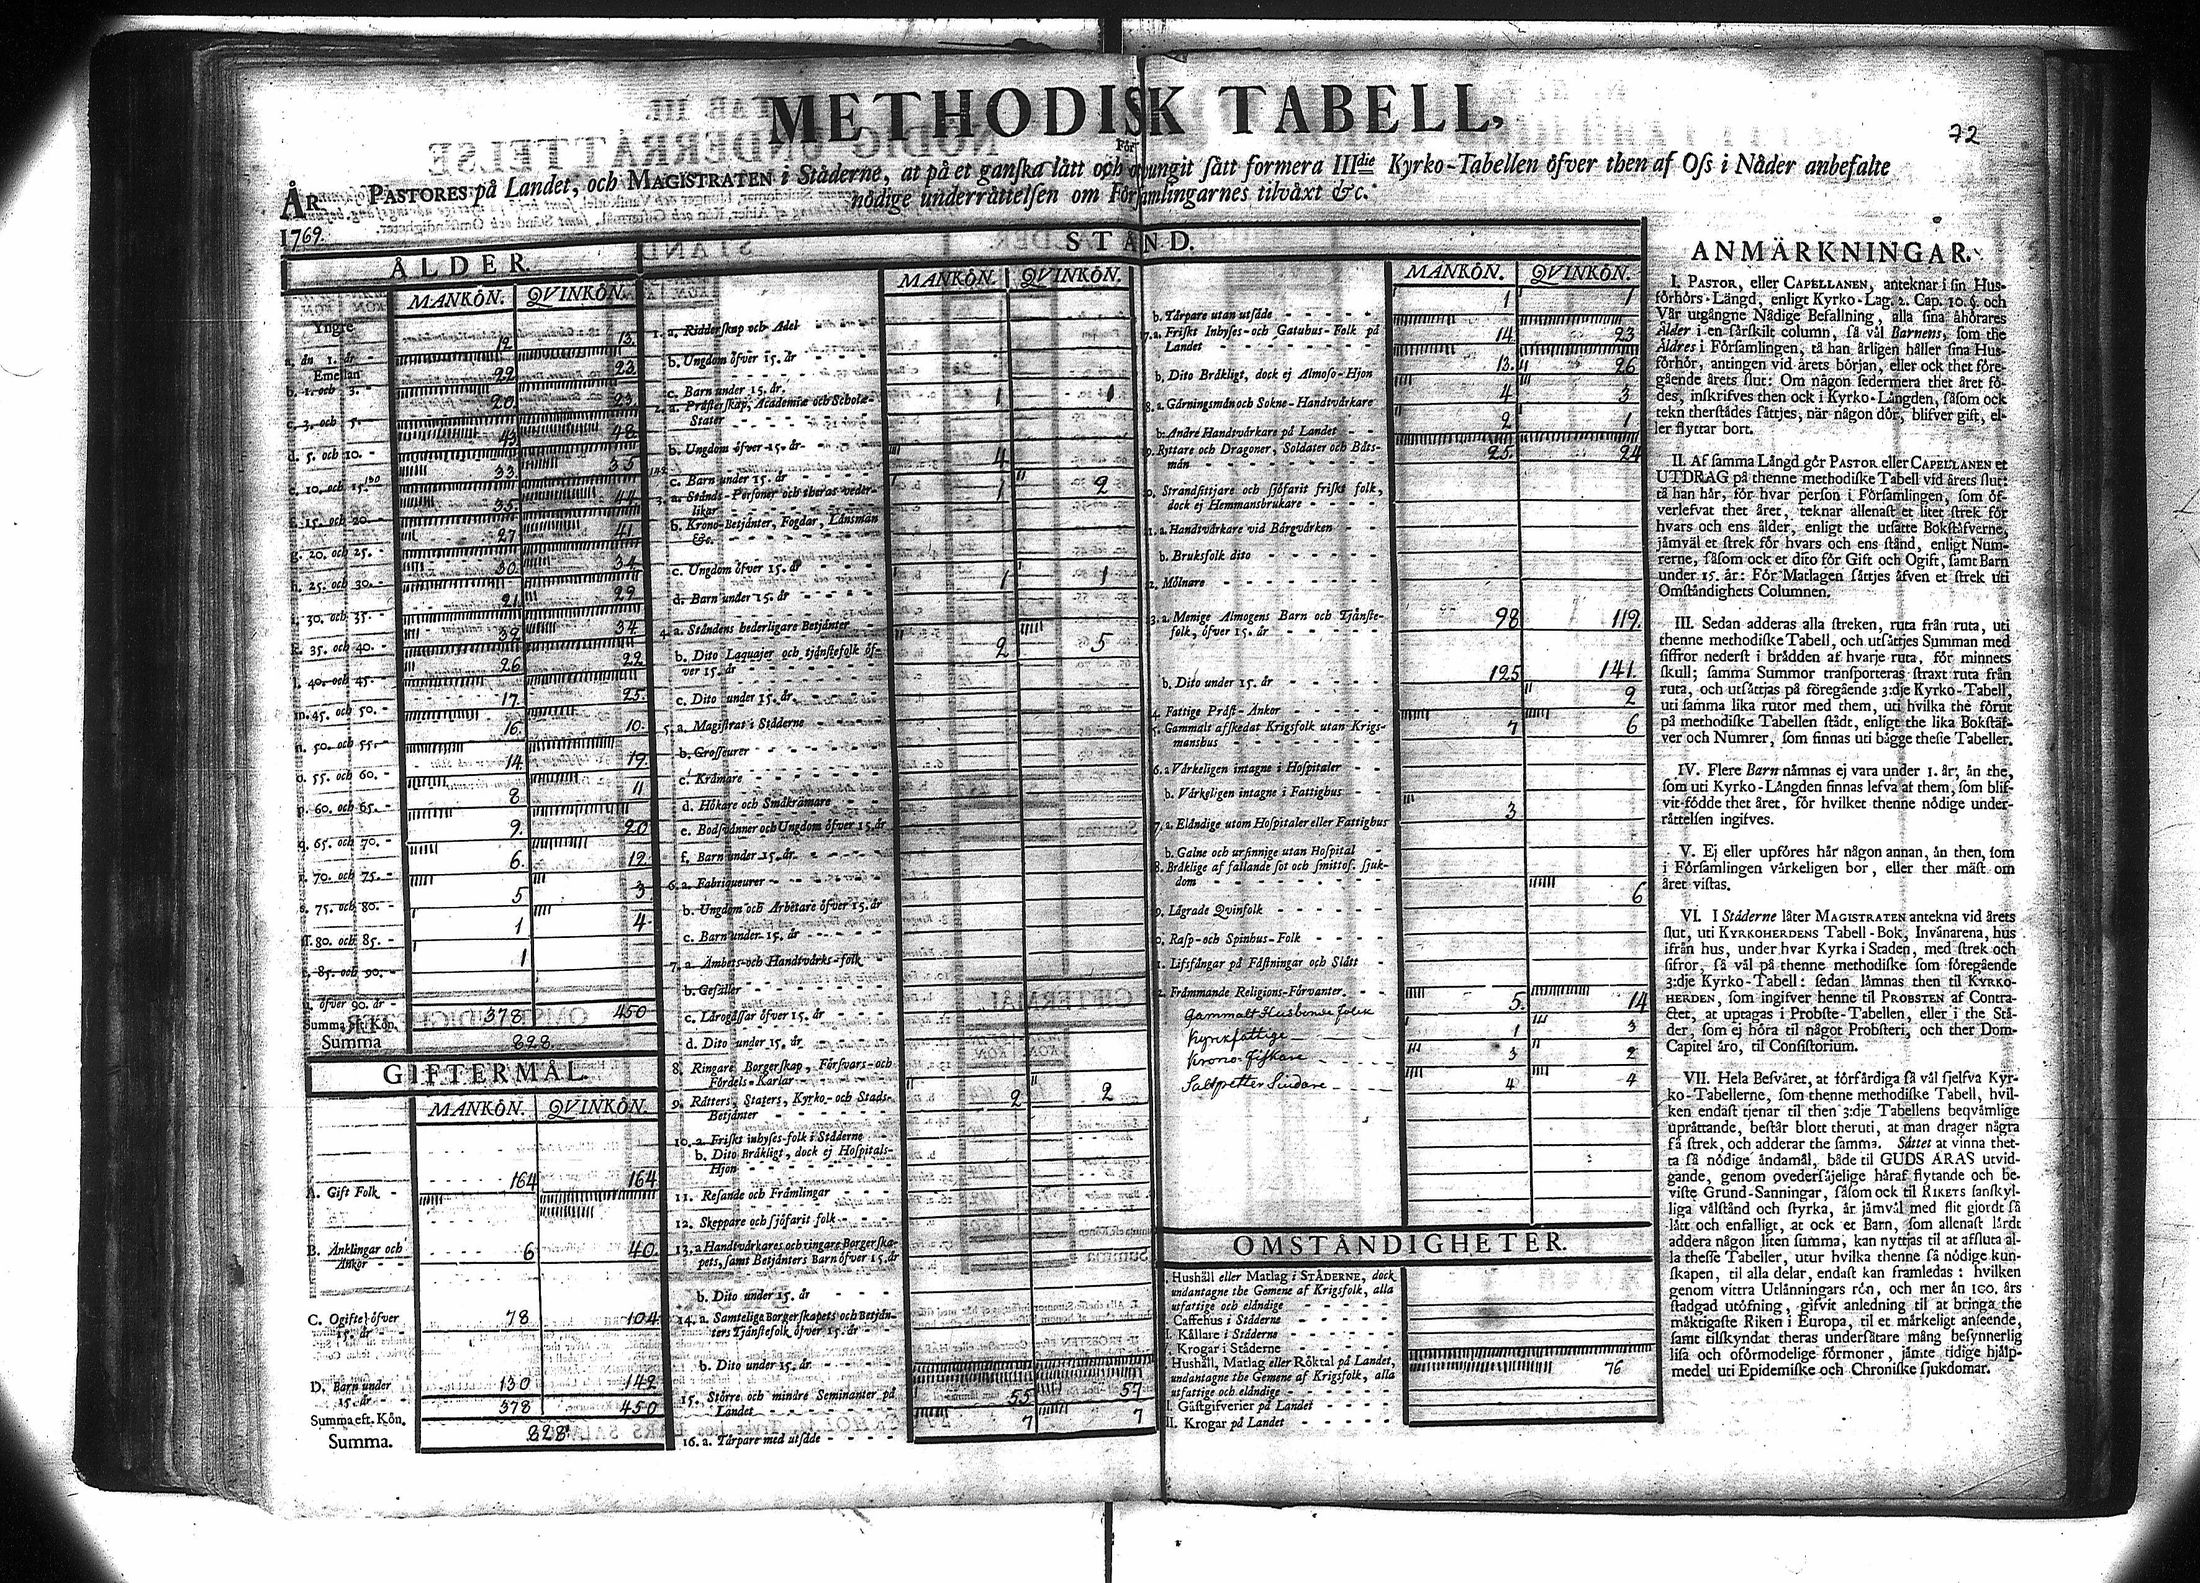 METHODISK TABELL,
72
För
PASTORES på Landet, och MAGISTRATEN i Städerne, at på et ganska lätt och otvungit sätt formera IIIdie Kyrko-Tabellen öfver then af Oss i Nåder anbefalte
nödige underrättelsen om Församlingarnes tilväxt &c.
ÅR
1769.
ÅLDER.
MANKÖN. QVINKÖN.
Yngre
a. än 1. år - 12. 13.
Emellan
b. 1. och 3. - 22 23
c. 3. och 5. - 20 23
d. 5. och 10. - 43 48
e. 10. och 15. 130 33 35 142
f. 15. och 20. - 35 44
g. 20. och 25. - 27 41
h. 25. och 30. - 30 34
i. 30. och 35. - 21. 29
k. 35. och 40. - 39 34
l. 40. och 45. - 26 22
m. 45. och 50. - 17 25.
n. 50. och 55. - 16. 10.
o. 55. och 60. - 14 19.
p. 60. och 65. - 8 11
q. 65. och 70. - 9. 20
r. 70. och 75. - 6. 12
s. 75. och 80. - 5 3
ſſ. 80. och 85. - 1 4
t. 85. och 90. - 1
u. öfver 90. år -
Summa eft. Kön. 378 450
Summa 828
GIFTERMÅL.
MANKÖN. QVINKÖN.
A. Gift Folk - 164 164
B. Änklingar och
Änkor - 6 40
C. Ogifte öfver
15. år - 78 104
D. Barn under
15. år - 130 142
Summa eft. Kön. 378 450
Summa. 828
STÅND.
MANKÖN. QVINKÖN.
1. a. Ridderskap och Adel
b. Ungdom öfver 15. år
c. Barn under 15. år.
2. a. Prästerskap, Academiæ och Scholæ-
Stater 1 1
b. Ungdom öfver 15. år
c. Barn under 15. år 4
3. a. Stånds-Personer och theras veder-
likar 1 2
b. Krono-Betjänter, Fogdar, Länsmän
&c.
c. Ungdom öfver 15. år
d. Barn under 15. år 1 1
4. a. Ståndens hederligare Betjänter
b. Dito Laquajer och tjänstefolk öf-
ver 15. år 2 5
c. Dito under 15. år
5. a. Magistrat i Städerne
b. Grosseurer
c. Krämare
d. Hökare och Småkrämare
e. Bodsvänner och Ungdom öfver 15. år
f. Barn under 15. år
6. a. Fabriqueurer
b. Ungdom och Arbetare öfver 15. år
c. Barn under 15. år
7. a. Ämbets- och Handtvärks-folk
b. Gesäller
c. Lärogåssar öfver 15. år
d. Dito under 15. år
8. Ringare Borgerskap, Försvars- och
Fördels-Karlar
9. Rätters, Staters, Kyrko- och Stads-
Betjänter 2 2
10. a. Friskt inhyses-folk i Städerne
b. Dito Bräkligt, dock ej Hospitals-
Hjon
11. Resande och Främlingar
12. Skeppare och sjöfarit folk
13. a Handtvärkares och ringare Borgerska-
pets, samt Betjänters Barn öfver 15. år
b. Dito under 15. år
14. a. Samtelige Borgerskapets och Betjän-
ters Tjänstefolk öfver 15. år
b. Dito under 15. år
15. Större och mindre Seminanter på
Landet 55 57
16. a. Tårpare med utsäde 7 7
MANKÖN. QVINKÖN.
b. Tårpare utan utsäde 1 1
7. a. Friskt Inhyses- och Gatuhus-Folk på
Landet 14 23
b. Dito Bräkligt, dock ej Almoso-Hjon 13. 26
8. a. Gärningsmän och Sokne-Handtvärkare 4 3
b. Andre Handtvärkare på Landet 2 1
9. Ryttare och Dragoner, Soldater och Båts-
män 25. 24
0. Strandsittjare och sjöfarit friskt folk,
dock ej Hemmansbrukare
1. a. Handtvärkare vid Bärgvärken
b. Bruksfolk dito
2. Mölnare
3. a Menige Almogens Barn och Tjänste-
folk, öfver 15. år 98 119.
b. Dito under 15. år 125 141.
4. Fattige Präst-Änkor 2
5. Gammalt afskedat Krigsfolk utan Krigs-
manshus 7 6
6. a Värkeligen intagne i Hospitaler
b. Värkeligen intagne i Fattighus
7. a. Eländige utom Hospitaler eller Fattighus 3
b. Galne och ursinnige utan Hospital
8. Bräklige af fallande sot och smittos. sjuk-
dom
9. Lägrade Qvinfolk 6
0. Rasp- och Spinhus-Folk
1. Lifsfångar på Fästningar och Slått
2. Främmande Religions-Förvanter
Gammalt Husbonde folk 5. 14
Kyrkfattige 1 3
Krono-Fiskare 3 2
Saltpetter Siudare 4 4
OMSTÄNDIGHETER.
Hushåll eller Matlag i STÄDERNE, dock
undantagne the Gemene af Krigsfolk, alla
utfattige och eländige
Caffehus i Städerne
I. Källare i Städerne
V. Krogar i Städerne
Hushåll, Matlag eller Röktal på Landet,
undantagne the Gemene af Krigsfolk, alla
utfattige och eländige 76
I. Gästgifverier på Landet
II. Krogar på Landet
ANMÄRKNINGAR.
I. PASTOR, eller CAPELLANEN, anteknar i sin Hus-
förhörs-Längd, enligt Kyrko-Lag. 2. Cap. 10. §. och
Vår utgångne Nådige Befallning, alla sina åhörares
Ålder i en särskilt column, så väl Barnens, som the
Äldres i Församlingen, tå han årligen håller sina Hus-
förhör, antingen vid årets början, eller ock thet före-
gående årets slut: Om någon sedermera thet året fö-
des, inskrifves then ock i Kyrko-Längden, såsom ock
tekn therstädes sättjes, när någon dör, blifver gift, el-
ler flyttar bort.
II. Af samma Längd gör PASTOR eller CAPELLANEN et
UTDRAG på thenne methodiske Tabell vid årets slut:
tå han här, för hvar person i Församlingen, som öf-
verlefvat thet året, teknar allenast et litet strek för
hvars och ens ålder, enligt the utsatte Bokstäfverne,
jämväl et strek för hvars och ens stånd, enligt Num-
rerne, såsom ock et dito för Gift och Ogift, samt Barn
under 15. år: För Matlagen sättjes äfven et strek uti
Omständighets Columnen.
III. Sedan adderas alla streken, ruta från ruta, uti
thenne methodiske Tabell, och utsättjes Summan med
siffror nederst i brädden af hvarje ruta, för minnets
skull; samma Summor transporteras straxt ruta från
ruta, och utsättjas på föregående 3:dje Kyrko-Tabell,
uti samma lika rutor med them, uti hvilka the förut
på methodiske Tabellen stådt, enligt the lika Bokstäf-
ver och Numrer, som finnas uti bägge thesse Tabeller.
IV. Flere Barn nämnas ej vara under 1. år, än the,
som uti Kyrko-Längden finnas lefva af them, som blif-
vit födde thet året, för hvilket thenne nödige under-
rättelsen ingifves.
V. Ej eller upföres här någon annan, än then, som
i Församlingen värkeligen bor, eller ther mäst om
året vistas.
VI. I Städerne låter MAGISTRATEN antekna vid årets
slut, uti KYRKOHERDENS Tabell-Bok, Invånarena, hus
ifrån hus, under hvar Kyrka i Staden, med strek och
sifror, så väl på thenne methodiske som föregående
3:dje Kyrko-Tabell: sedan lämnas then til KYRKO-
HERDEN, som ingifver henne til PROBSTEN af Contra-
ctet, at uptagas i Probste-Tabellen, eller i the Stä-
der, som ej höra til något Probsteri, och ther Dom-
Capitel äro, til Consistorium.
VII. Hela Besväret, at förfärdiga så väl sjelfva Kyr-
ko-Tabellerne, som thenne methodiske Tabell, hvil-
ken endast tjenar til then 3:dje Tabellens beqvämlige
uprättande, består blott theruti, at man drager några
få strek, och adderar the samma. Sättet at vinna thet-
ta så nödige ändamål, både til GUDS ÄRAS utvid-
gande, genom ovedersäjelige häraf flytande och be-
viste Grund-Sanningar, såsom ock til RIKETS sanskyl-
liga välstånd och styrka, är jämväl med flit gjordt så
lätt och enfalligt, at ock et Barn, som allenast lärdt
addera någon liten summa, kan nyttjas til at afsluta al-
la thesse Tabeller, utur hvilka thenne så nödige kun-
skapen, til alla delar, endast kan framledas: hvilken
genom vittra Utlänningars rön, och mer än 100. års
stadgad utöfning, gifvit anledning til at bringa the
mäktigaste Riken i Europa, til et märkeligt anseende,
samt tilskyndat theras undersåtare mång besynnerlig
lisa och oförmodelige förmoner, jämte tidige hjälp-
medel uti Epidemiske och Chroniske sjukdomar.